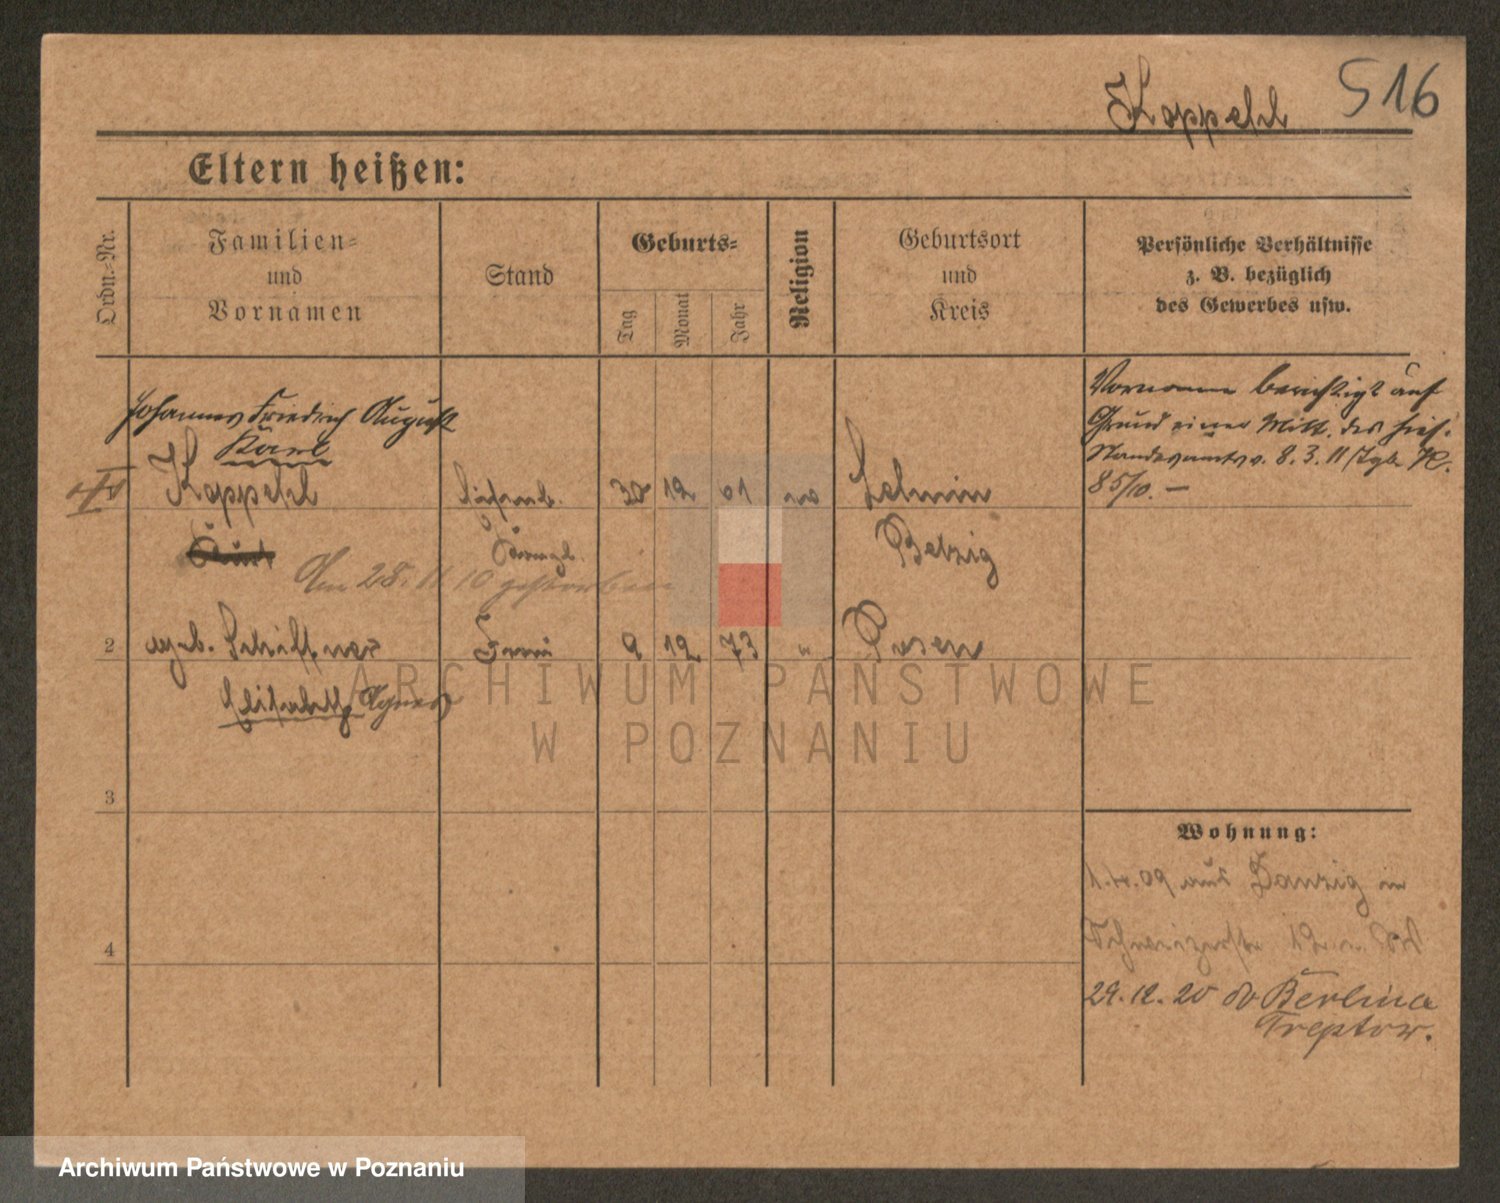 Koppehl 516
Eltern heißen:
Ordn.-Nr.
Familien-
und
Vornamen
Stand
Geburts-
Tag
Monat
Jahr
Religion
Geburtsort
und
Kreis
Persönliche Verhältnisse
z. B. bezüglich
des Gewerbes usw.
Johannes Friedrich August
Karl
Koppehl
30 12 01
Lehnin
Belzig
Vorname berichtigt auf
Grund einer Mitt. des hies.
Standesamts v. 8. 3. 11
85/10. —
Am 28. 11 10 gestorben
2 geb. Schiffner Frau 9 12 73 " Posen
Elisabeth Agnes
3
4
Wohnung:
1.4.09 aus Danzig in
29.12.20 Berlin
Treptow.
ARCHIWUM PAŃSTWOWE
W POZNANIU
Archiwum Państwowe w Poznaniu